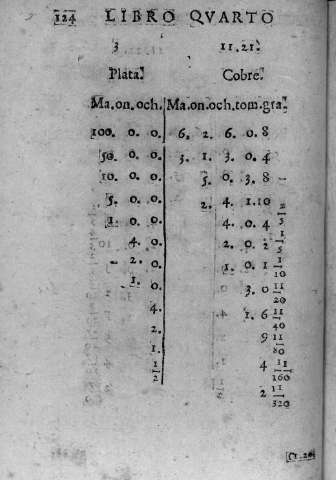 124 LIBRO QVARTO
3 11.21.
Plata. Cobre.
Ma. on. och. Ma. on. och. tom. gra.
100. 0. 0. 6. 2. 6. 0. 8
50. 0. 0. 3. 1. 3. 0. 4
10. 0. 0. 5. 0. 3. 8 –
5. 0. 0. 2. 4. 1. 10 2/5
1. 0. 0. 4. 0. 4 1/5
4. 0. 2. 0. 2 1/10
– 2. 0. 1. 0. 1 11/20
1. 0. 3. 0 11/40
4. 1. 6 11/80
2. 9 11/160
1. 4 11/320
1/2 2